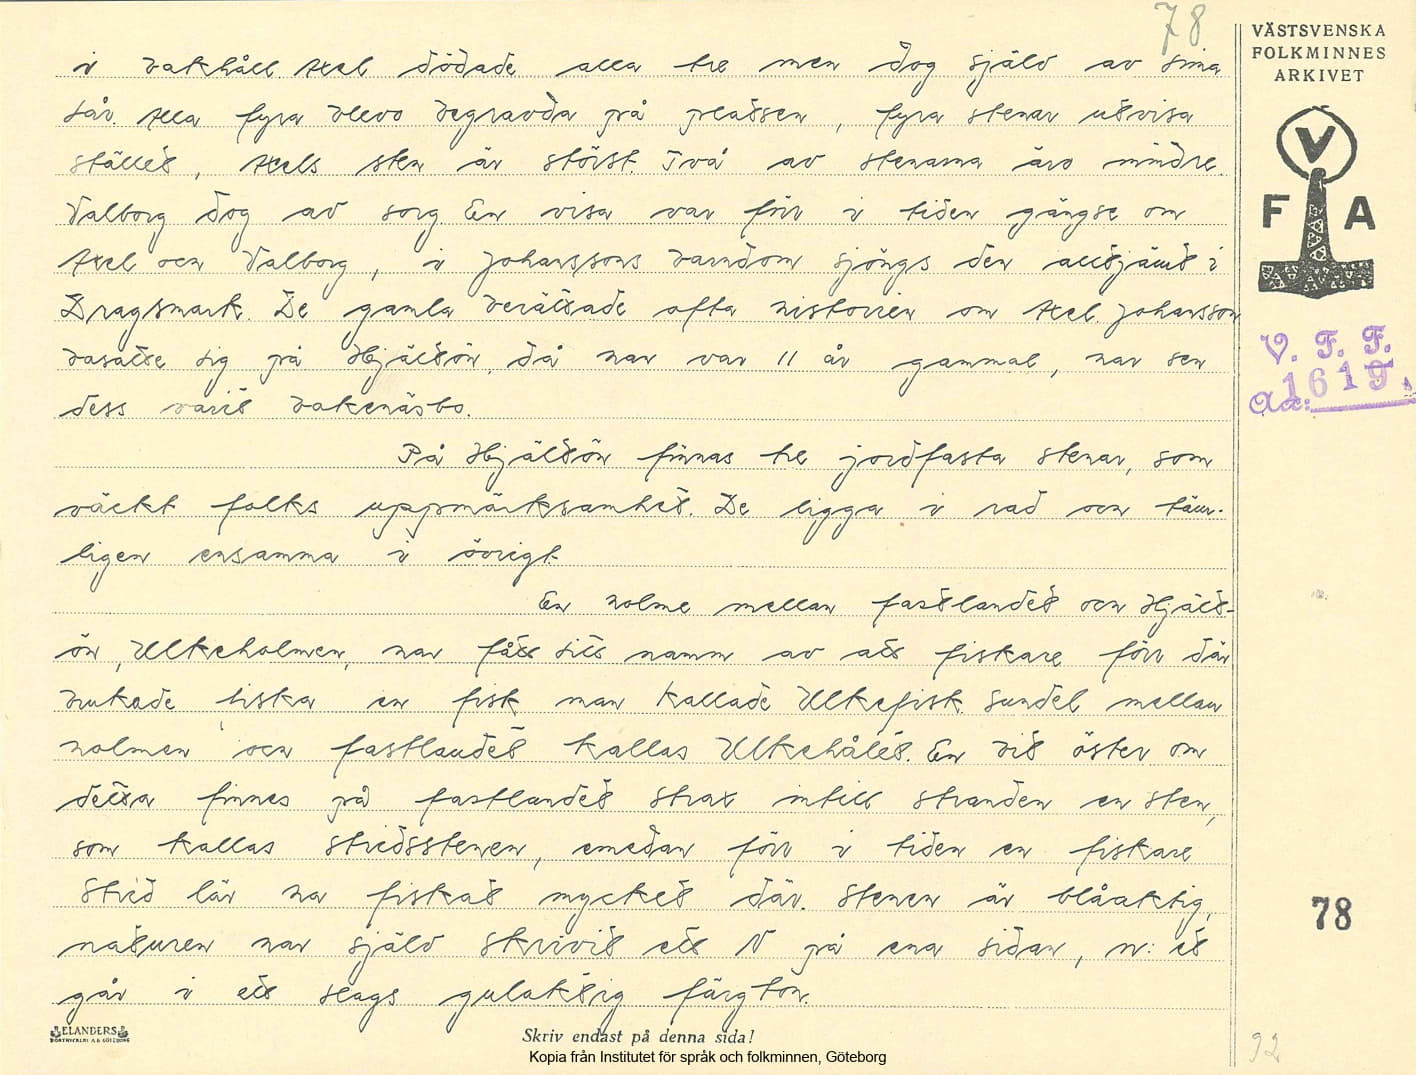 78
VÄSTSVENSKA
FOLKMINNES
ARKIVET
i bakhåll Axel dödade alla tre men dog själv av sina
sår. Alla fyra blevo begravda på platsen, fyra stenar utvisa
stället, Axels sten är störst. Två av stenarna äro mindre.
Valborg dog av sorg En visa var förr i tiden gängse om
Axel och Valborg, i Johanssons barndom sjöngs den alltjämt i
Dragsmark. De gamla berättade ofta historien om Axel. Johansson
bosatte sig på Hjältön, då han var 11 år gammal, har sen
dess varit bokenäsbo.
På Hjältön finnas tre jordfasta stenar, som
väckt folks uppmärksamhet. De ligga i rad och täm-
ligen ensamma i övrigt.
En holme mellan fastlandet och Hjält-
ön, Ulkeholmen, har fått sitt namn av att fiskare förr där
brukade fiska en fisk man kallade Ulkefisk. Sundet mellan
holmen och fastlandet kallas Ulkehålet. En bit öster om
detta finnes på fastlandet strax intill stranden en sten,
som kallas Stridsstenen, emedan förr i tiden en fiskare
Strid lär ha fiskat mycket där. Stenen är blåaktig,
naturen har själv skrivit ett N på ena sidan, n: et
går i ett slags gulaktig färgton.
V
F A
V. F. F.
Acc: 1619.
78
ELANDERS
BOKTRYCKERI A.B GÖTEBORG
Skriv endast på denna sida!
Kopia från Institutet för språk och folkminnen, Göteborg
92